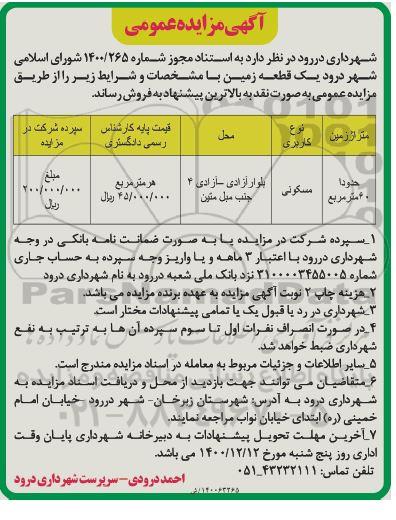 آگهی مزایده عمومی
شهرداری دررود در نظر دارد به استناد مجوز شماره ۱۴۰۰/۲۶۵ شورای اسلامی
شهر درود یک قطعه زمین با مشخصات و شرایط زیر را از طریق
مزایده عمومی به صورت نقد به بالاترین پیشنهاد به فروش رساند.
متراژ زمین	نوع کاربری	محل	قیمت پایه کارشناس رسمی دادگستری	سپرده شرکت در مزایده
حدودا ۶۰مترمربع	مسکونی	بلوار آزادی –آزادی ۴ جنب مبل متین	هرمترمربع ۴۵/۰۰۰/۰۰۰ ریال	مبلغ ۲۰۰/۰۰۰/۰۰۰ ریال
۱_سپرده شرکت در مزایده یا به صورت ضمانت نامه بانکی در وجه
شهرداری دررود با اعتبار ۳ ماهه و یا واریز وجه سپرده به حساب جاری
شماره ۳۱۰۰۰۰۳۴۵۵۰۰۵ نزد بانک ملی شعبه دررود به نام شهرداری درود
۲_هزینه چاپ ۲ نوبت آگهی مزایده به عهده برنده مزایده می باشد.
۳_شهرداری در رد یا قبول یک یا تمامی پیشنهادات مختار است.
۴_در صورت انصراف نفرات اول تا سوم سپرده آن ها به ترتیب به نفع
شهرداری ضبط خواهد شد.
۵_سایر اطلاعات و جزئیات مربوط به معامله در اسناد مزایده مندرج است.
۶_متقاضیان می توانند جهت بازدید از محل و دریافت اسناد مزایده به
شهرداری درود به آدرس: شهرستان زبرخان– شهر دررود _خیابان امام
خمینی (ره) ابتدای خیابان نواب مراجعه نمایند.
۷_آخرین مهلت تحویل پیشنهادات به دبیرخانه شهرداری پایان وقت
اداری روز پنج شنبه مورخ ۱۴۰۰/۱۲/۱۲ می باشد.
تلفن تماس: ۴۳۲۳۲۱۱۱_۰۵۱
احمد درودی– سرپرست شهرداری درود
۱۴۰۰۶۳۲۶۵/ش